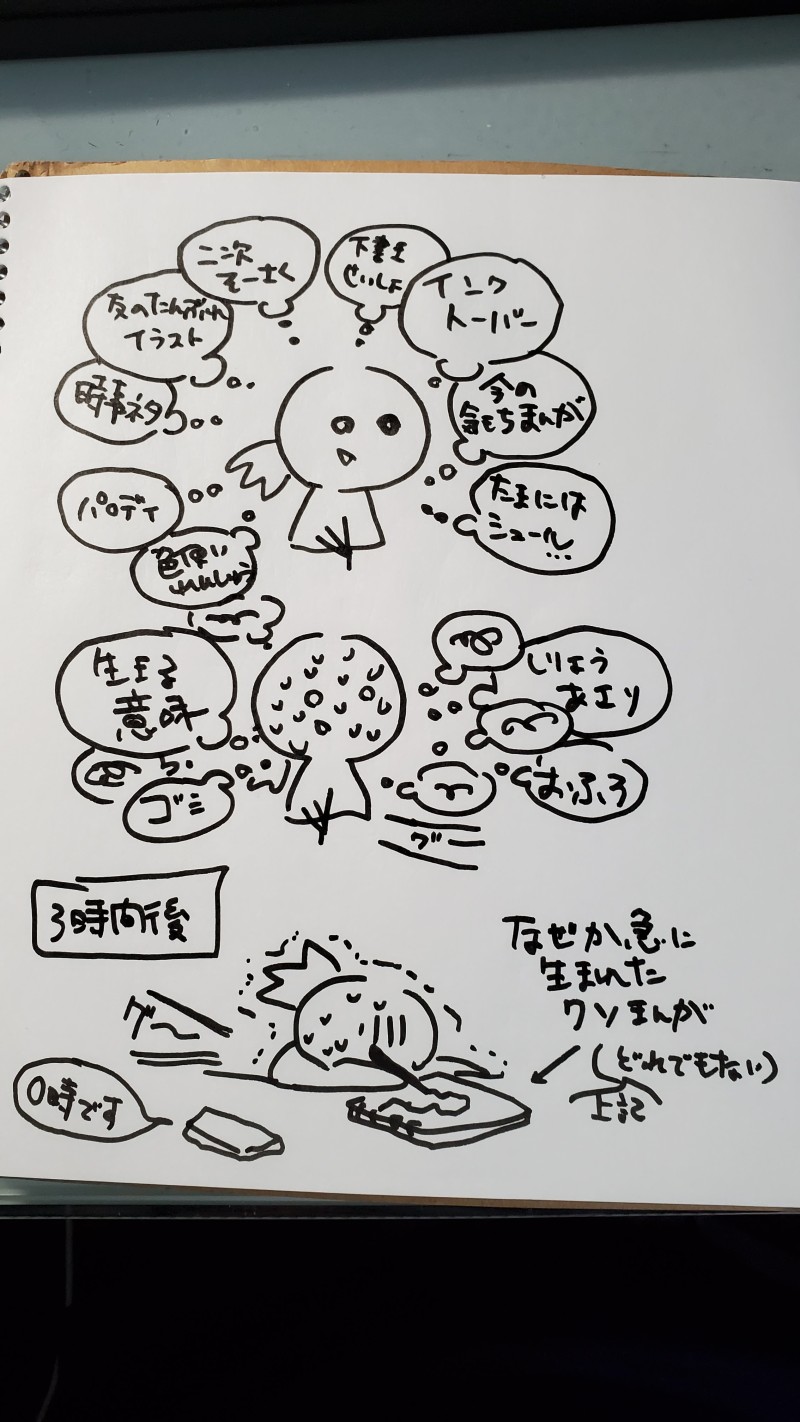 二次
そーさく
下書き
せいしょ
友のたんぷれ
イラスト
インク
トーバー
時事ネタ
今の
気もちまんが
パロディ
たまには
シュール…
色使い
れんしゅう
生まる
意味
しりょう
あさり
ゴミ
おふろ
グー
3時間後
なぜか急に
生まれた
クソまんが
(どれでもない)
上記
グー
0時です